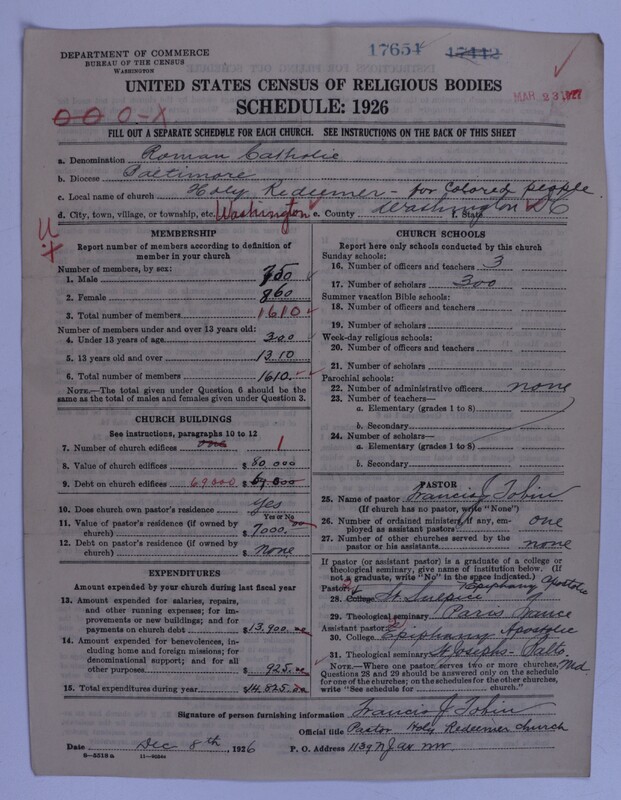 17654 17442
DEPARTMENT OF COMMERCE
BUREAU OF THE CENSUS
WASHINGTON
UNITED STATES CENSUS OF RELIGIOUS BODIES
MAR 23 1927
SCHEDULE: 1926
O O O-X
FILL OUT A SEPARATE SCHEDULE FOR EACH CHURCH. SEE INSTRUCTIONS ON THE BACK OF THIS SHEET
a. Denomination Roman Catholic
b. Diocese Baltimore
c. Local name of church Holy Redeemer - for Colored people
d. City, town, village, or township, etc. Washington e. County Washington f. State DC
MEMBERSHIP
Report number of members according to definition of
member in your church
Number of members, by sex:
1. Male 750
2. Female 860
3. Total number of members 1610
Number of members under and over 13 years old:
4. Under 13 years of age 300
5. 13 years old and over 1310
6. Total number of members 1610.
NOTE.—The total given under Question 6 should be
same as the total of males and females given under Question 3.
CHURCH BUILDINGS
See instructions, paragraphs 10 to 12
7. Number of church edifices one 1
8. Value of church edifices $ 80 000
9. Debt on church edifices 69000 $ 69.000
10. Does church own pastor's residence? Yes
Yes or No
11. Value of pastor's residence (if owned by
church) $ 7000.00
12. Debt on pastor's residence (if owned by
church) $ None
EXPENDITURES
Amount expended by your church during last fiscal year
13. Amount expended for salaries, repairs,
and other running expenses; for im-
provements or new buildings; and for
payments on church debt $ 13,900.00
14. Amount expended for benevolences, in-
cluding home and foreign missions; for
denominational support; and for all
other purposes $ 925.00
15. Total expenditures during year $ 14.825.00
CHURCH SCHOOLS
Report here only schools conducted by this church
Sunday schools:
16. Number of officers and teachers 3
17. Number of scholars 300
Summer vacation Bible schools:
18. Number of officers and teachers
19. Number of scholars
Week-day religious schools:
20. Number of officers and teachers
21. Number of scholars
Parochial schools:
22. Number of administrative officers none
23. Number of teachers—
a. Elementary (grades 1 to 8)
b. Secondary
24. Number of scholars—
a. Elementary (grades 1 to 8)
b. Secondary
PASTOR
25. Name of pastor Francis J Tobin
(If church has no pastor, write "None")
26. Number of ordained ministers, if any, em-
ployed as assistant pastors one
27. Number of other churches served by the
pastor or his assistants none
If pastor (or assistant pastor) is a graduate of a college or
theological seminary, give name of institution below. (If
not a graduate, write "No" in the space indicated.)
Pastor: Epiphany Apostolic
28. College St Sulpice
29. Theological seminary Paris France
Assistant pastor:
30. College Epiphany Apostolic
31. Theological seminary St Josephs - Balto. Md.
NOTE.—Where one pastor serves two or more churches,
Questions 28 and 29 should be answered only on the schedule
for one of the churches; on the schedules for the other churches,
write "See schedule for church."
Signature of person furnishing information Francis J Tobin
Official title Pastor Holy Redeemer church
Date Dec 8th, 1926 P. O. Address 1139 N J av nw.
8-5518 a